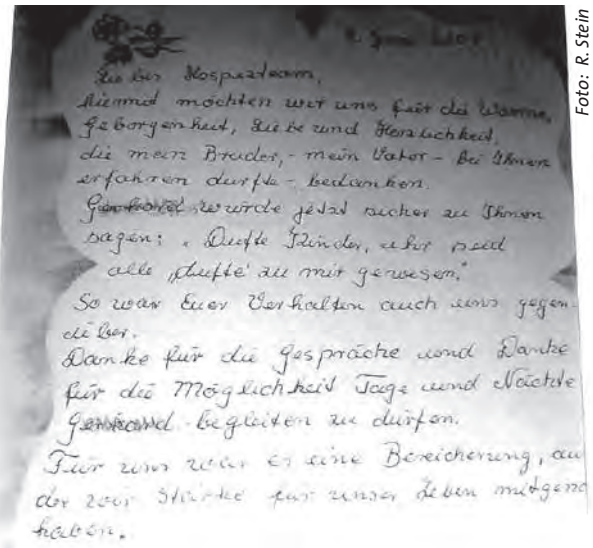 Liebes Hospizteam,
hiermit möchten wir uns für die Wärme,
Geborgenheit, Liebe und Herzlichkeit,
die mein Bruder, - mein Vater - bei Ihnen
erfahren durfte - bedanken.
würde jetzt sicher zu Ihnen
sagen: "Dufte Kinder, ihr seid
alle "dufte" zu mir gewesen."
So war Euer Verhalten auch uns gegen-
über.
Danke für die Gespräche und Danke
für die Möglichkeit Tage und Nächte
begleiten zu dürfen.
Für uns war es eine Bereicherung, au
der wir Stärke für unser Leben mitgeno
haben.
Foto: R. Stein